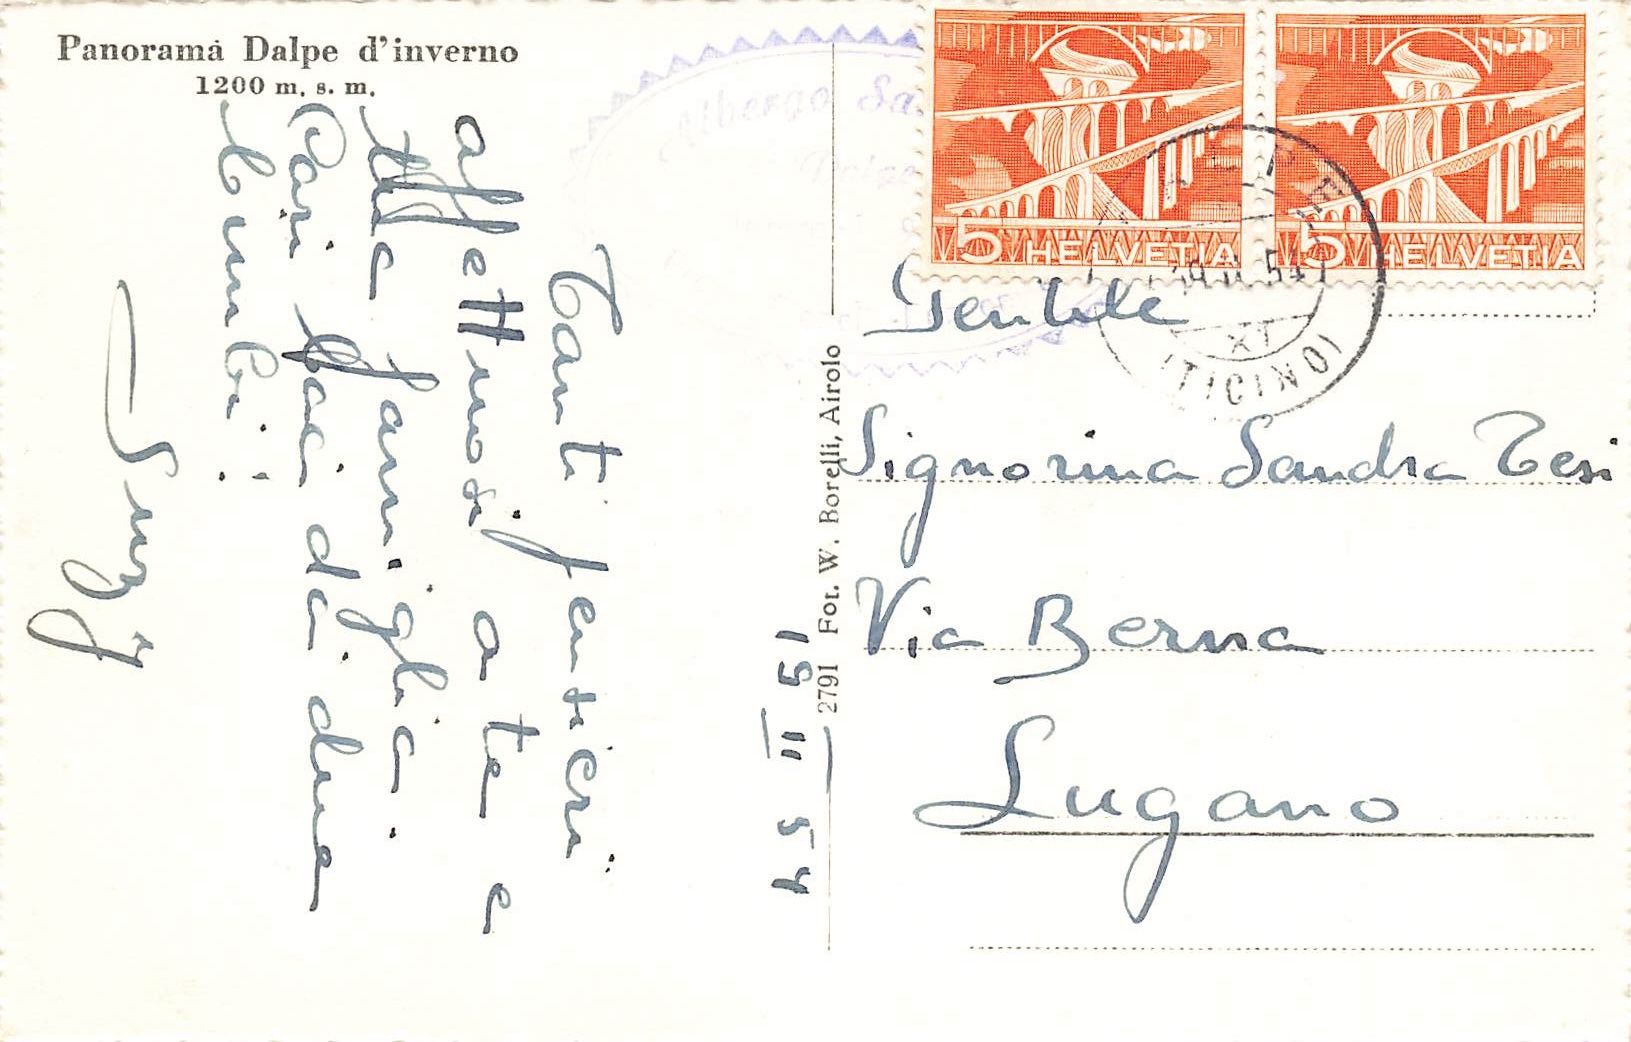 Panorama Dalpe d'inverno
1200 m. s. m.
Tanti pensieri
affettuosi a te e
famiglia.
Cari baci dai due
bimbi.
Suzy
2791 Fot. W. Borelli, Airolo
Albergo
5 HELVETIA
5 HELVETIA
(TICINO)
Gentile
Signorina Sandra Tesi
Via Berna
Lugano